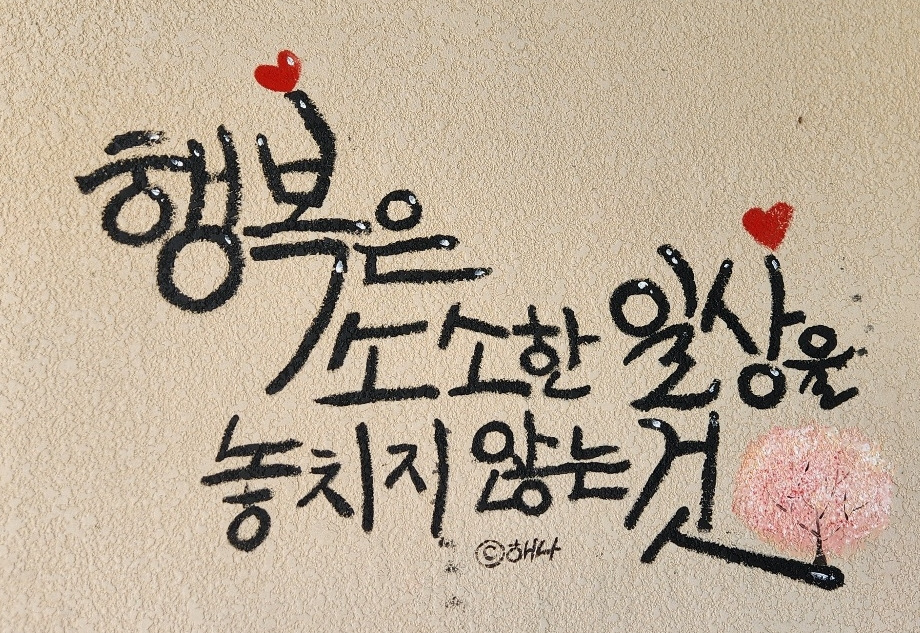 행복은
소소한 일상을
놓치지 않는것
©해나